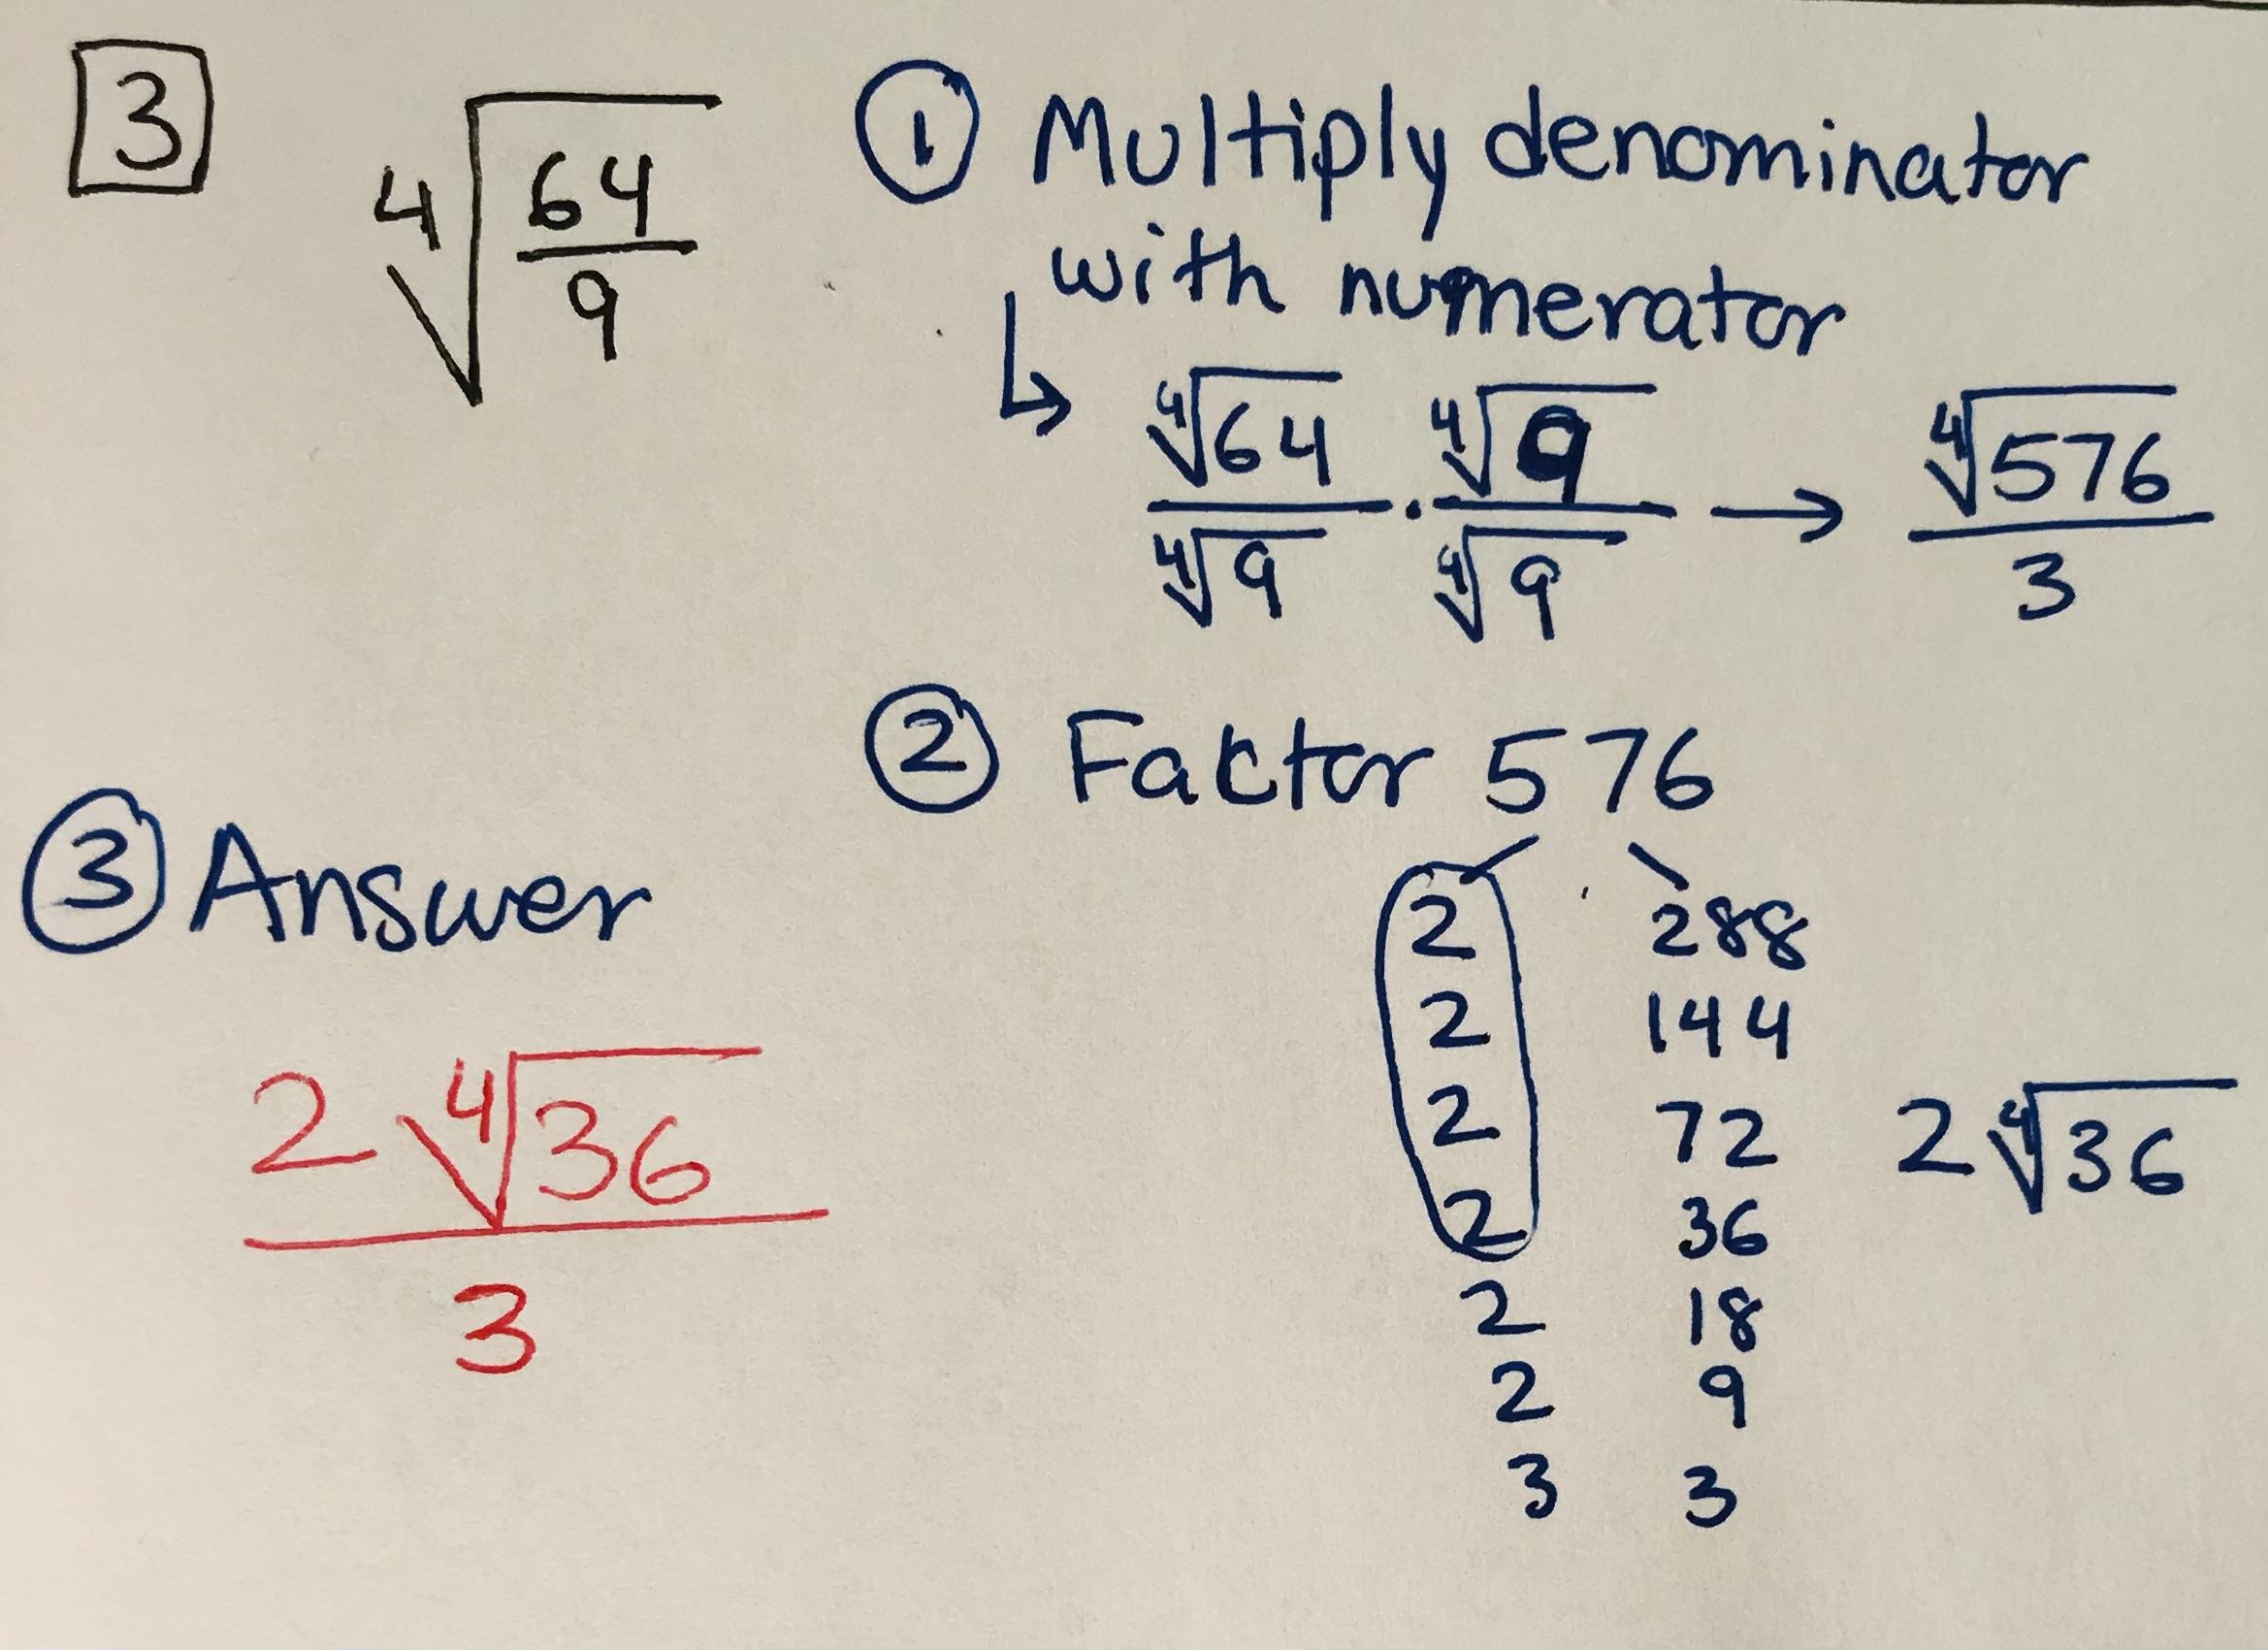 3
⁴√(64/9)
① Multiply denominator
with numerator
↳ ⁴√64/⁴√9 · ⁴√9/⁴√9 → ⁴√576/3
② Factor 576
2 288
2 144
2 72 2⁴√36
2 36
2 18
2 9
3 3
③ Answer
2⁴√36/3